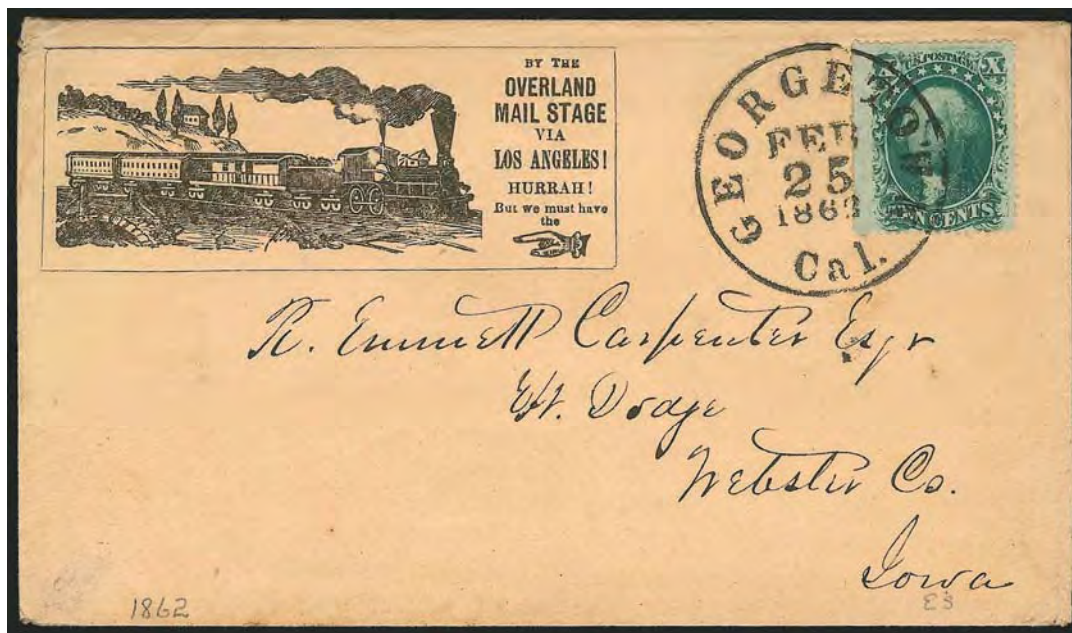 BY THE
OVERLAND
MAIL STAGE
VIA
LOS ANGELES!
HURRAH!
But we must have
the
GEORGETOWN
FEB
25
1862
Cal.
U.S. POSTAGE
X X
TEN CENTS
R. Emmett Carpenter Esqr
Ft. Dodge
Webster Co.
Iowa
1862
ES